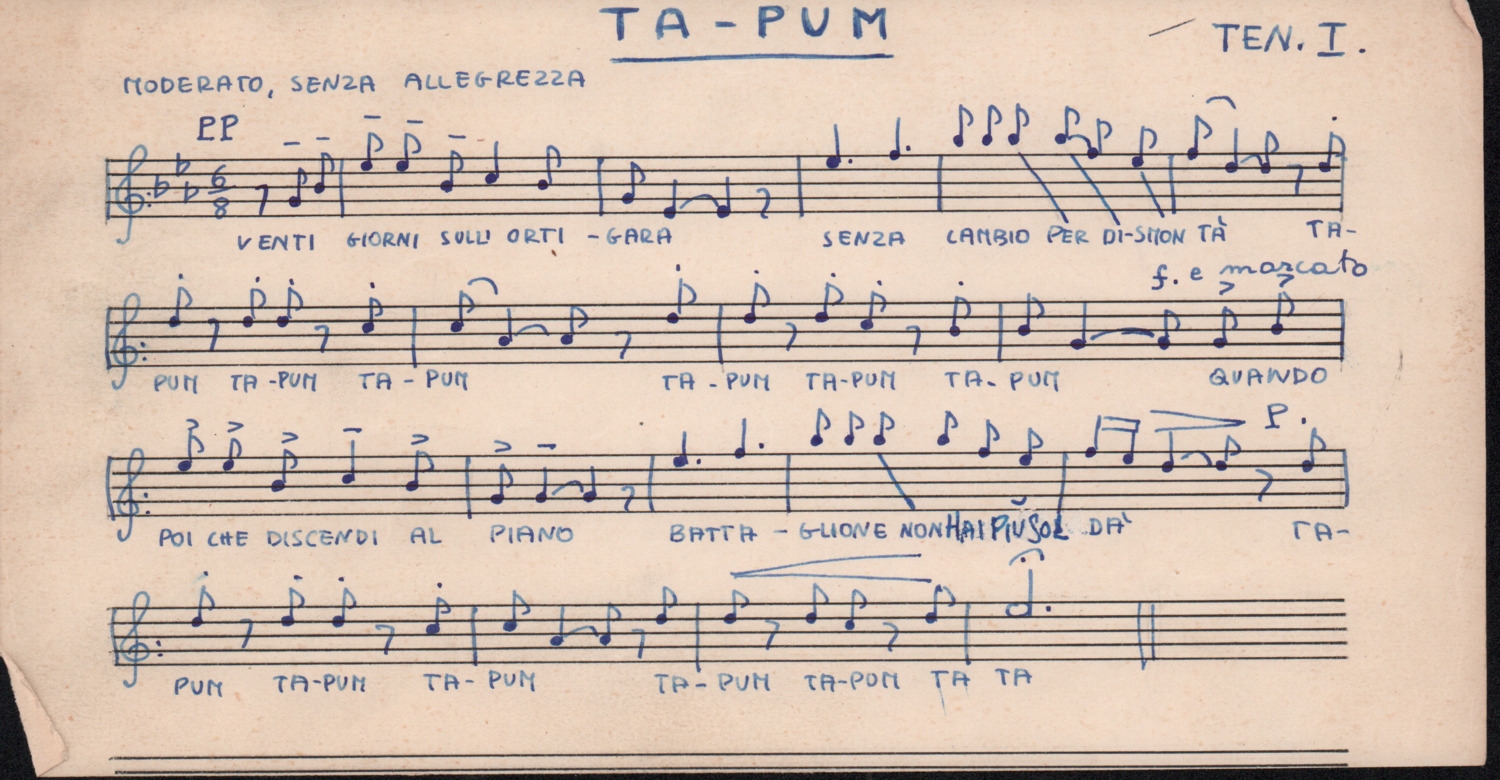 TA-PUM
TEN. I.
MODERATO, SENZA ALLEGREZZA
PP
6
8
VENTI GIORNI SULL' ORTI-GARA SENZA CAMBIO PER DI-SMON TÀ TA-
f. e marcato
PUM TA-PUM TA-PUM TA-PUM TA-PUM TA-PUM QUANDO
P.
POI CHE DISCENDI AL PIANO BATTA-GLIONE NON HAI PIÙ SOL DÀ TA-
PUM TA-PUM TA-PUM TA-PUM TA-POM TA TA